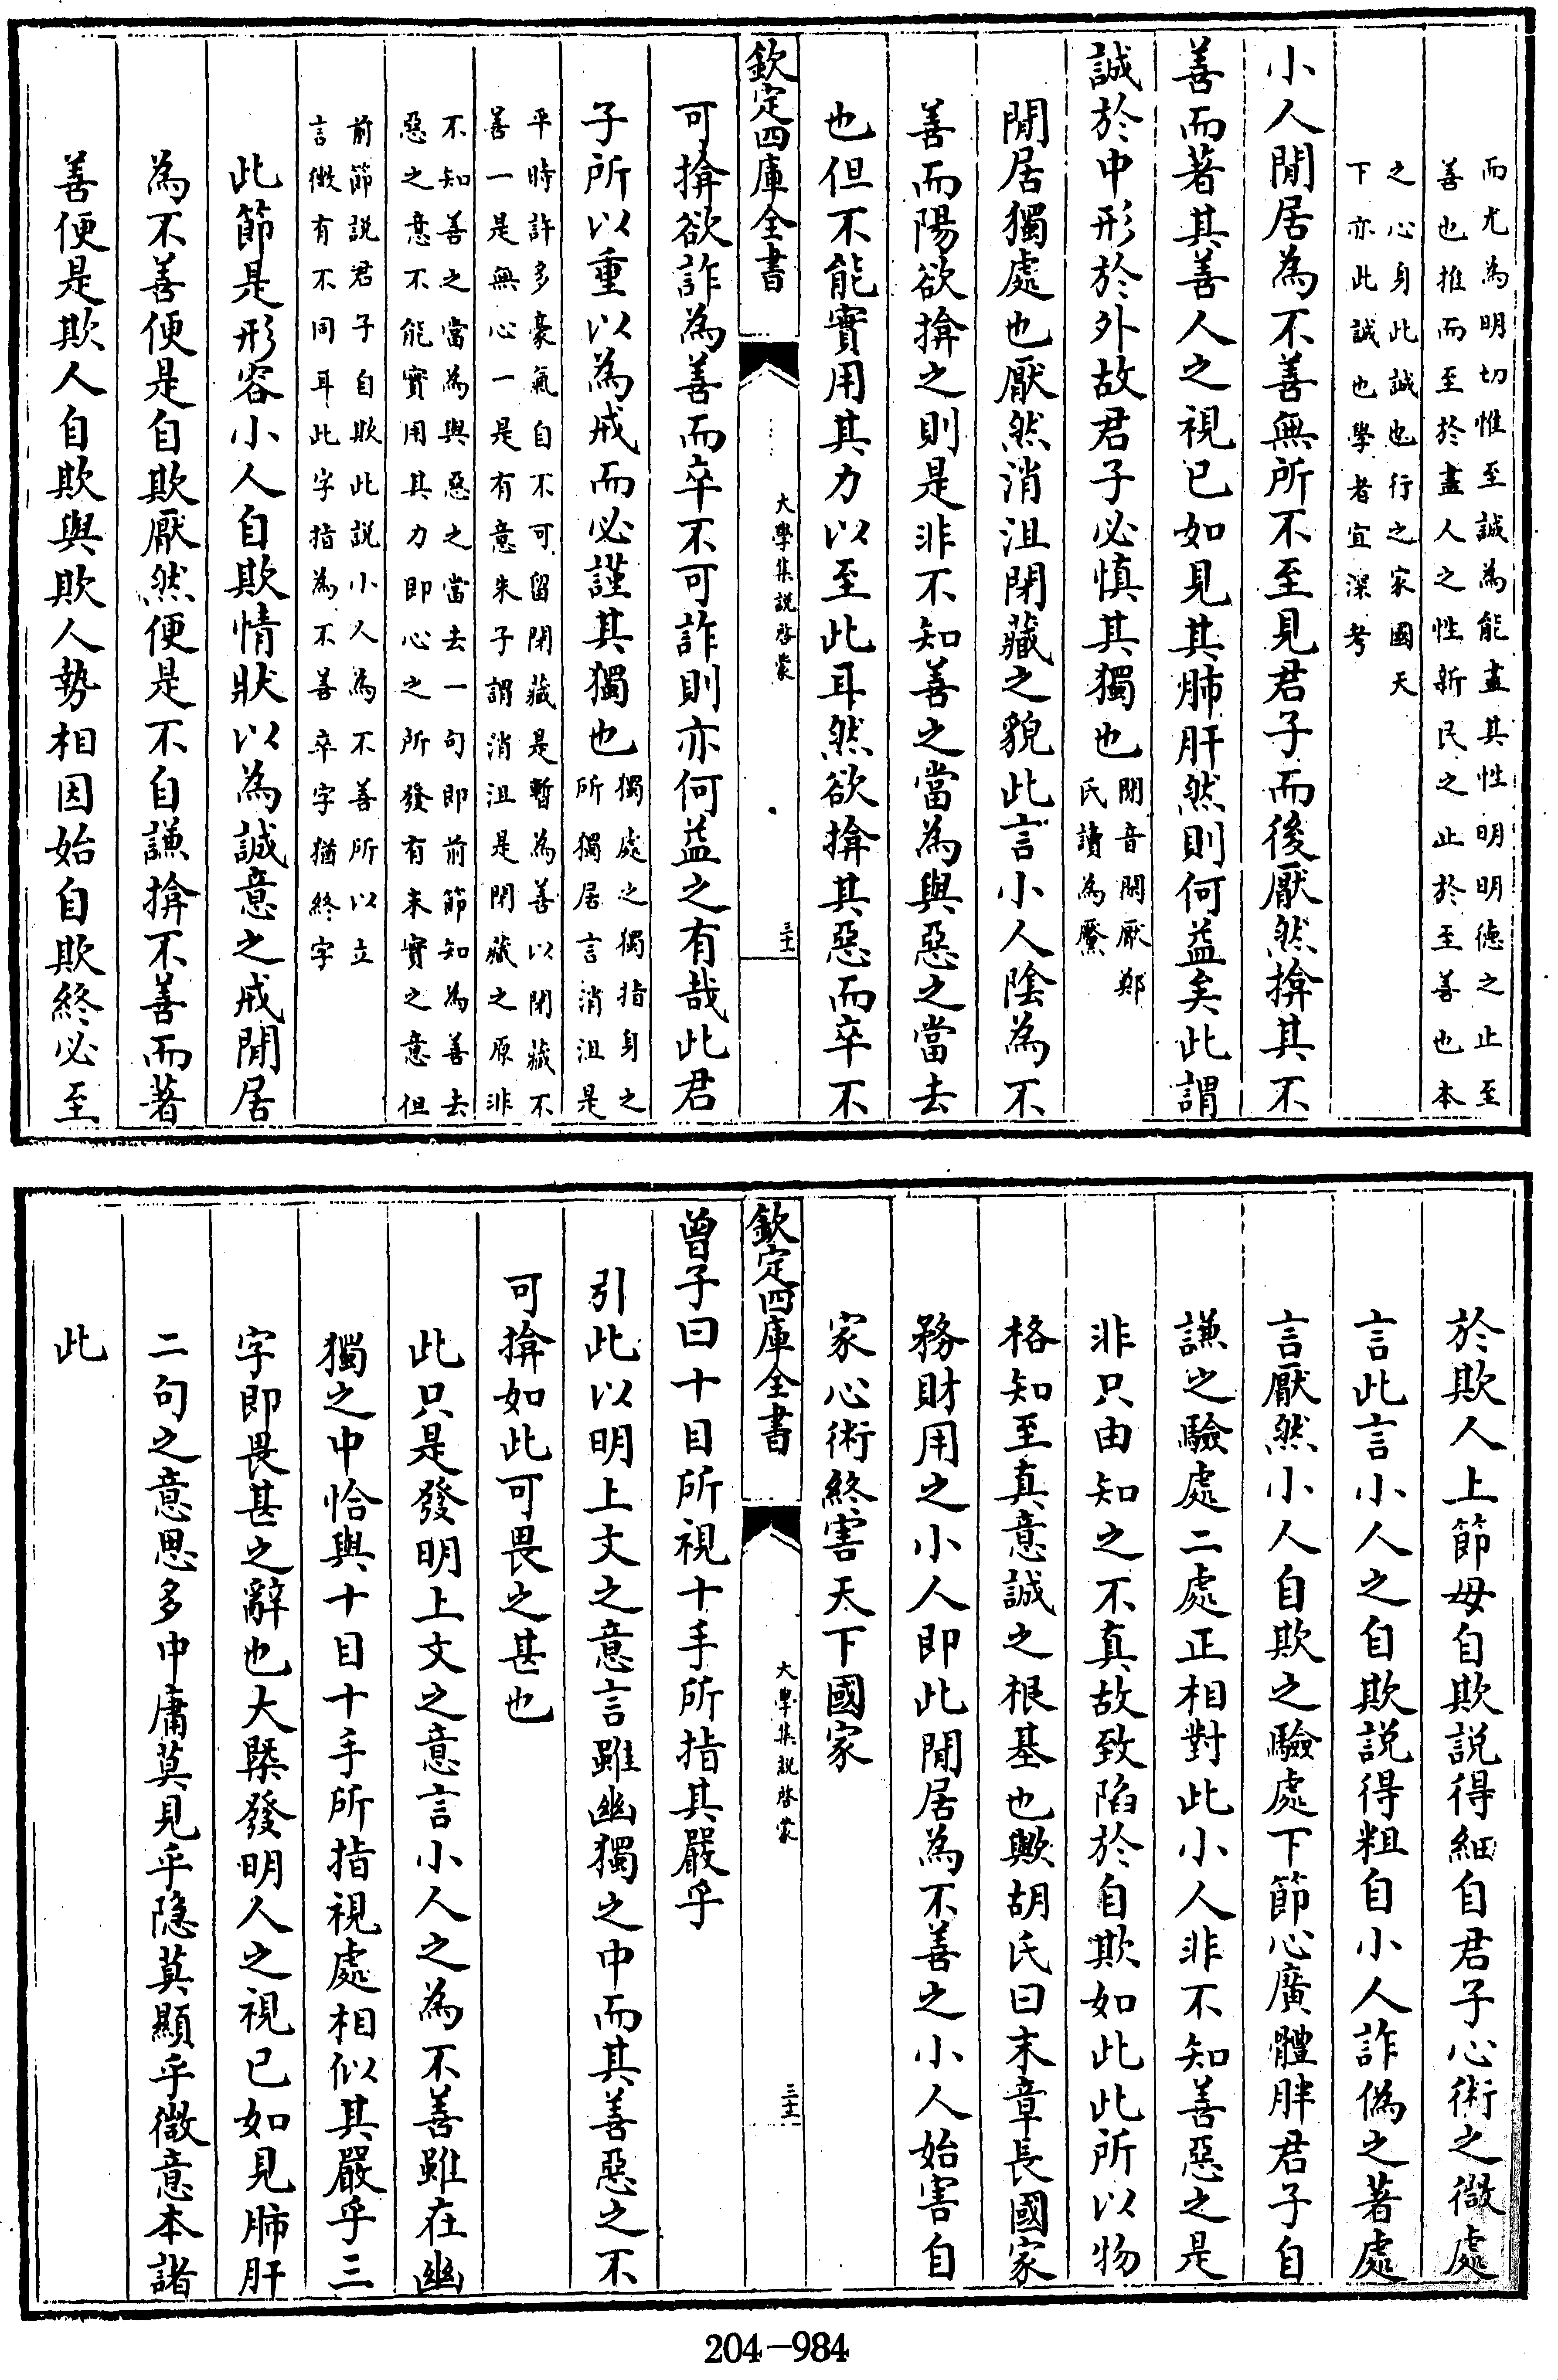 而尤為明切惟至誠為能盡其性明明德之止至
善也推而至於盡人之性新民之止於至善也本
之心身此誠也行之家國天
下亦此誠也學者宜深考
小人閒居為不善無所不至見君子而後厭然揜其不
善而著其善人之視已如見其肺肝然則何益矣此謂
誠於中形於外故君子必慎其獨也
閒音閑厭鄭
氏讀為黶
閒居獨處也厭然消沮閉藏之貌此言小人陰為不
善而陽欲揜之則是非不知善之當為與惡之當去
也但不能實用其力以至此耳然欲揜其惡而卒不
欽定四庫全書
大學集說啓蒙
三十
可揜欲詐為善而卒不可詐則亦何益之有哉此君
子所以重以為戒而必謹其獨也
獨處之獨指身之
所獨居言消沮是
平時許多豪氣自不可留閉藏是暫為善以閉藏不
善一是無心一是有意朱子謂消沮是閉藏之原非
不知善之當為與惡之當去一句即前節知為善去
惡之意不能實用其力即心之所發有未實之意但
前節說君子自欺此說小人為不善所以立
言微有不同耳此字指為不善卒字猶終字
此節是形容小人自欺情狀以為誠意之戒閒居
為不善便是自欺厭然便是不自謙揜不善而著
善便是欺人自欺與欺人勢相因始自欺終必至
於欺人上節毋自欺說得細自君子心術之微處
言此言小人之自欺說得粗自小人詐偽之著處
言厭然小人自欺之驗處下節心廣體胖君子自
謙之驗處二處正相對此小人非不知善惡之是
非只由知之不真故致陷於自欺如此此所以物
格知至真意誠之根基也歟胡氏曰末章長國家
務財用之小人即此閒居為不善之小人始害自
家心術終害天下國家
欽定四庫全書
大學集說啓蒙
三十
曾子曰十目所視十手所指其嚴乎
引此以明上文之意言雖幽獨之中而其善惡之不
可揜如此可畏之甚也
此只是發明上文之意言小人之為不善雖在幽
獨之中恰與十目十手所指視處相似其嚴乎三
字即畏甚之辭也大槩發明人之視已如見肺肝
二句之意思多中庸莫見乎隱莫顯乎微意本諸
此
204-984